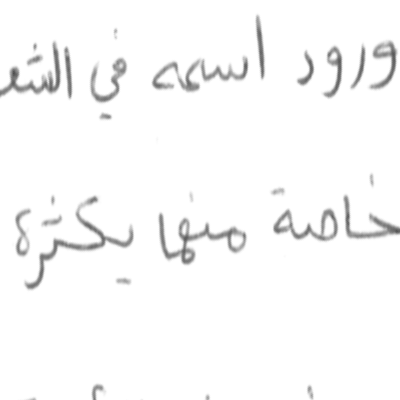 ورود اسمه في الشع
خاصة منها بكثرة